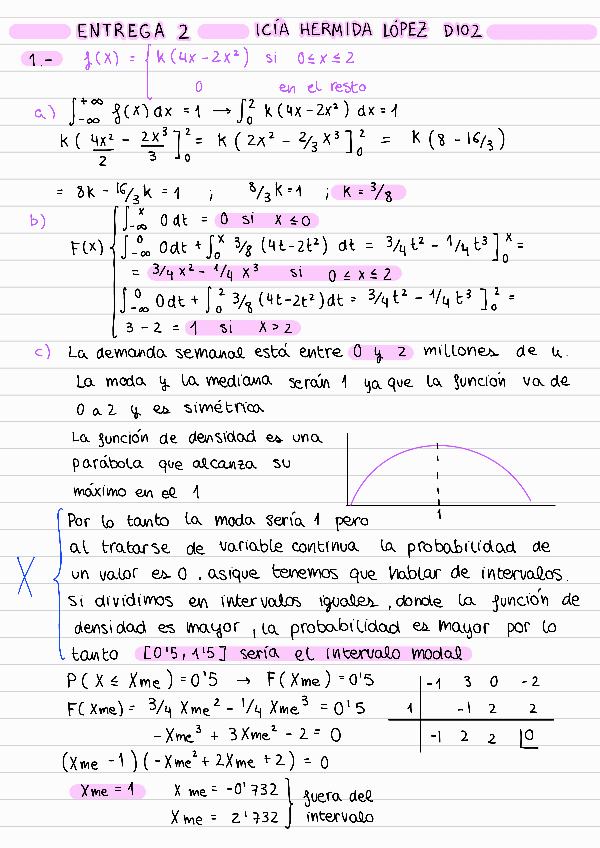 ENTREGA 2 ICÍA HERMIDA LÓPEZ D102
1.- f(x) = { k(4x-2x²) si 0≤x≤2
0 en el resto
a) ∫_{-∞}^{+∞} f(x) dx = 1 → ∫_0^2 k(4x-2x²) dx = 1
k( 4x²/2 - 2x³/3 ]_0^2 = k( 2x² - 2/3 x³ ]_0^2 = k(8 - 16/3)
= 8k - 16/3 k = 1 ; 8/3 k = 1 ; k = 3/8
b) F(x) { ∫_{-∞}^x 0 dt = 0 si x ≤ 0
∫_{-∞}^0 0dt + ∫_0^x 3/8 (4t-2t²) dt = 3/4 t² - 1/4 t³ ]_0^x =
= 3/4 x² - 1/4 x³ si 0 ≤ x ≤ 2
∫_{-∞}^0 0dt + ∫_0^2 3/8 (4t-2t²)dt = 3/4 t² - 1/4 t³ ]_0^2 =
3 - 2 = 1 si x > 2
c) La demanda semanal está entre 0 y 2 millones de u.
La moda y la mediana serán 1 ya que la función va de
0 a 2 y es simétrica
La función de densidad es una
parábola que alcanza su
máximo en el 1
1
Por lo tanto la moda sería 1 pero
al tratarse de variable continua la probabilidad de
X un valor es 0, asique tenemos que hablar de intervalos.
si dividimos en intervalos iguales, donde la función de
densidad es mayor, la probabilidad es mayor por lo
tanto [0'5, 1'5] sería el intervalo modal
P(X ≤ Xme) = 0'5 → F(Xme) = 0'5
F(Xme) = 3/4 Xme² - 1/4 Xme³ = 0'5
- Xme³ + 3Xme² - 2 = 0
-1 3 0 -2
1 -1 2 2
-1 2 2 0
(Xme - 1)(-Xme² + 2Xme + 2) = 0
Xme = 1 Xme = -0'732 } fuera del
Xme = 2'732 intervalo